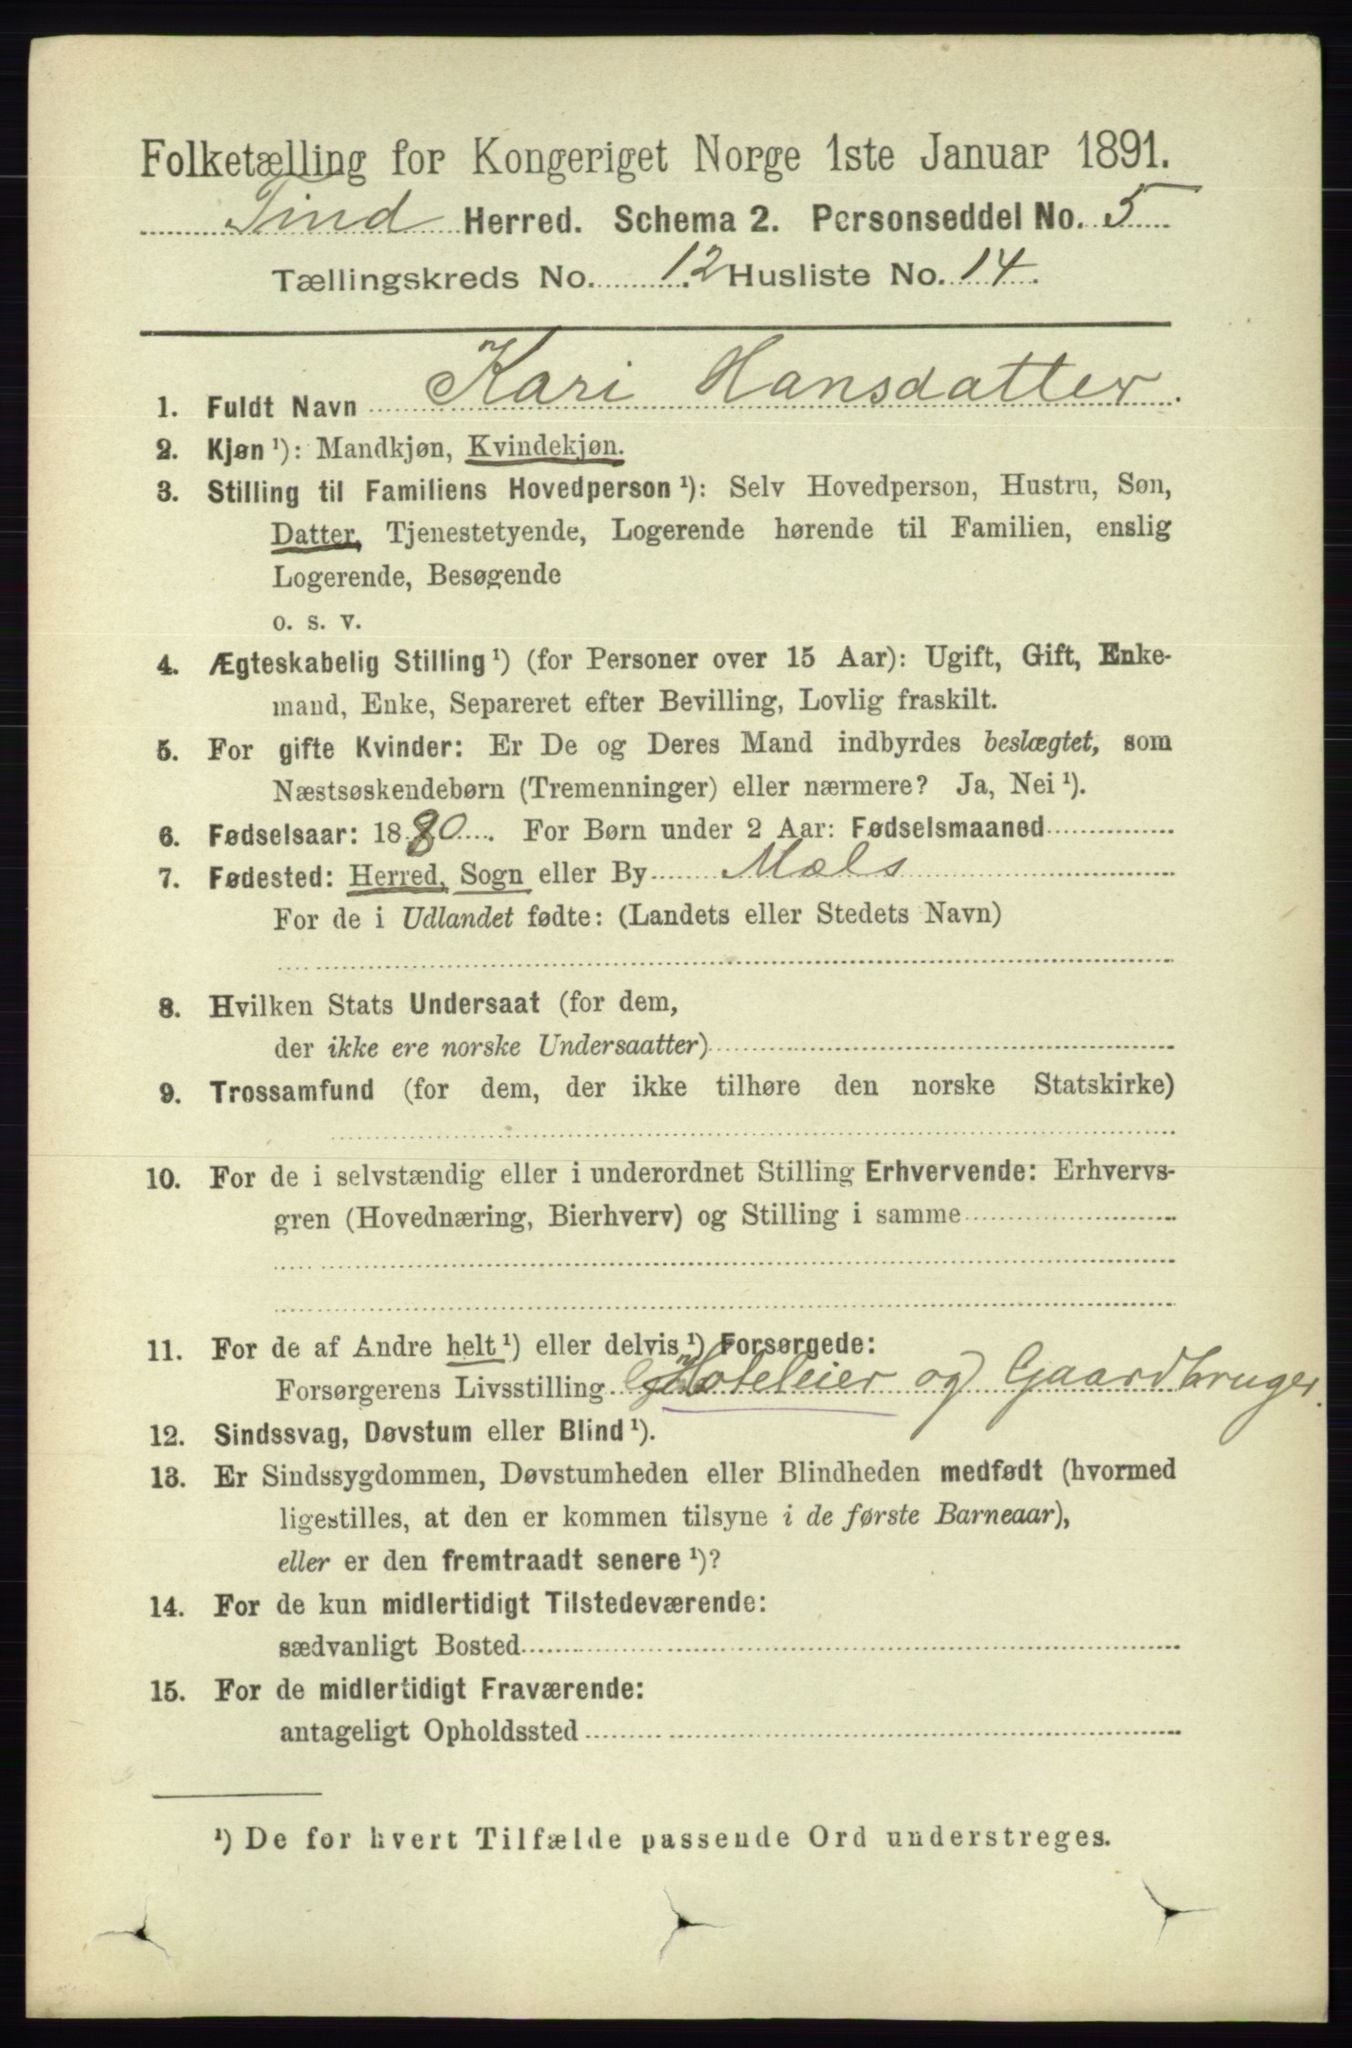 Folketælling for Kongeriget Norge 1ste Januar 1891.
Tind Herred. Schema 2. Personseddel No. 5
Tællingskreds No. 12 Husliste No. 14.
1. Fuldt Navn Kari Hansdatter.
2. Kjøn ¹): Mandkjøn, Kvindekjøn.
3. Stilling til Familiens Hovedperson ¹): Selv Hovedperson, Hustru, Søn,
Datter, Tjenestetyende, Logerende hørende til Familien, enslig
Logerende, Besøgende
o. s. v.
4. Ægteskabelig Stilling ¹) (for Personer over 15 Aar): Ugift, Gift, Enke-
mand, Enke, Separeret efter Bevilling, Lovlig fraskilt.
5. For gifte Kvinder: Er De og Deres Mand indbyrdes beslægtet, som
Næstsøskendebørn (Tremenninger) eller nærmere? Ja, Nei ¹).
6. Fødselsaar: 1880. For Børn under 2 Aar: Fødselsmaaned
7. Fødested: Herred, Sogn eller By Mæls
For de i Udlandet fødte: (Landets eller Stedets Navn)
8. Hvilken Stats Undersaat (for dem,
der ikke ere norske Undersaatter)
9. Trossamfund (for dem, der ikke tilhøre den norske Statskirke)
10. For de i selvstændig eller i underordnet Stilling Erhvervende: Erhvervs-
gren (Hovednæring, Bierhverv) og Stilling i samme
11. For de af Andre helt ¹) eller delvis ¹) Forsørgede:
Forsørgerens Livsstilling Hoteleier og Gaardbruger.
12. Sindssvag, Døvstum eller Blind ¹).
13. Er Sindssygdommen, Døvstumheden eller Blindheden medfødt (hvormed
ligestilles, at den er kommen tilsyne i de første Barneaar),
eller er den fremtraadt senere ¹)?
14. For de kun midlertidigt Tilstedeværende:
sædvanligt Bosted
15. For de midlertidigt Fraværende:
antageligt Opholdssted
¹) De for hvert Tilfælde passende Ord understreges.